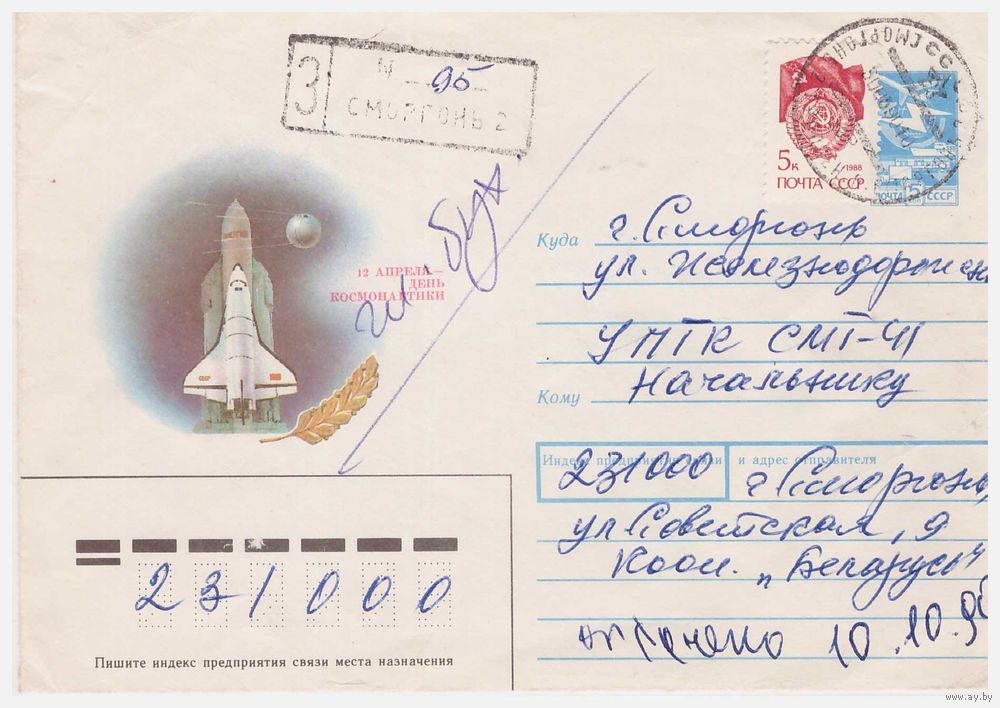 З
N 95
СМОРГОНЬ 2
5К 1988
ПОЧТА СССР
ПОЧТА 5 СССР
12 АПРЕЛЯ—
ДЕНЬ
КОСМОНАВТИКИ
гл. бух
Куда г. Сморгонь
ул. Железнодорожн
УПТК СМТ-41
Кому Начальнику
СССР
Индекс предприятия связи и адрес отправителя
231000 г. Сморгонь,
ул. Советская, 9
Кооп. „Беларусь"
10.10.
231000
Пишите индекс предприятия связи места назначения
www.ay.by